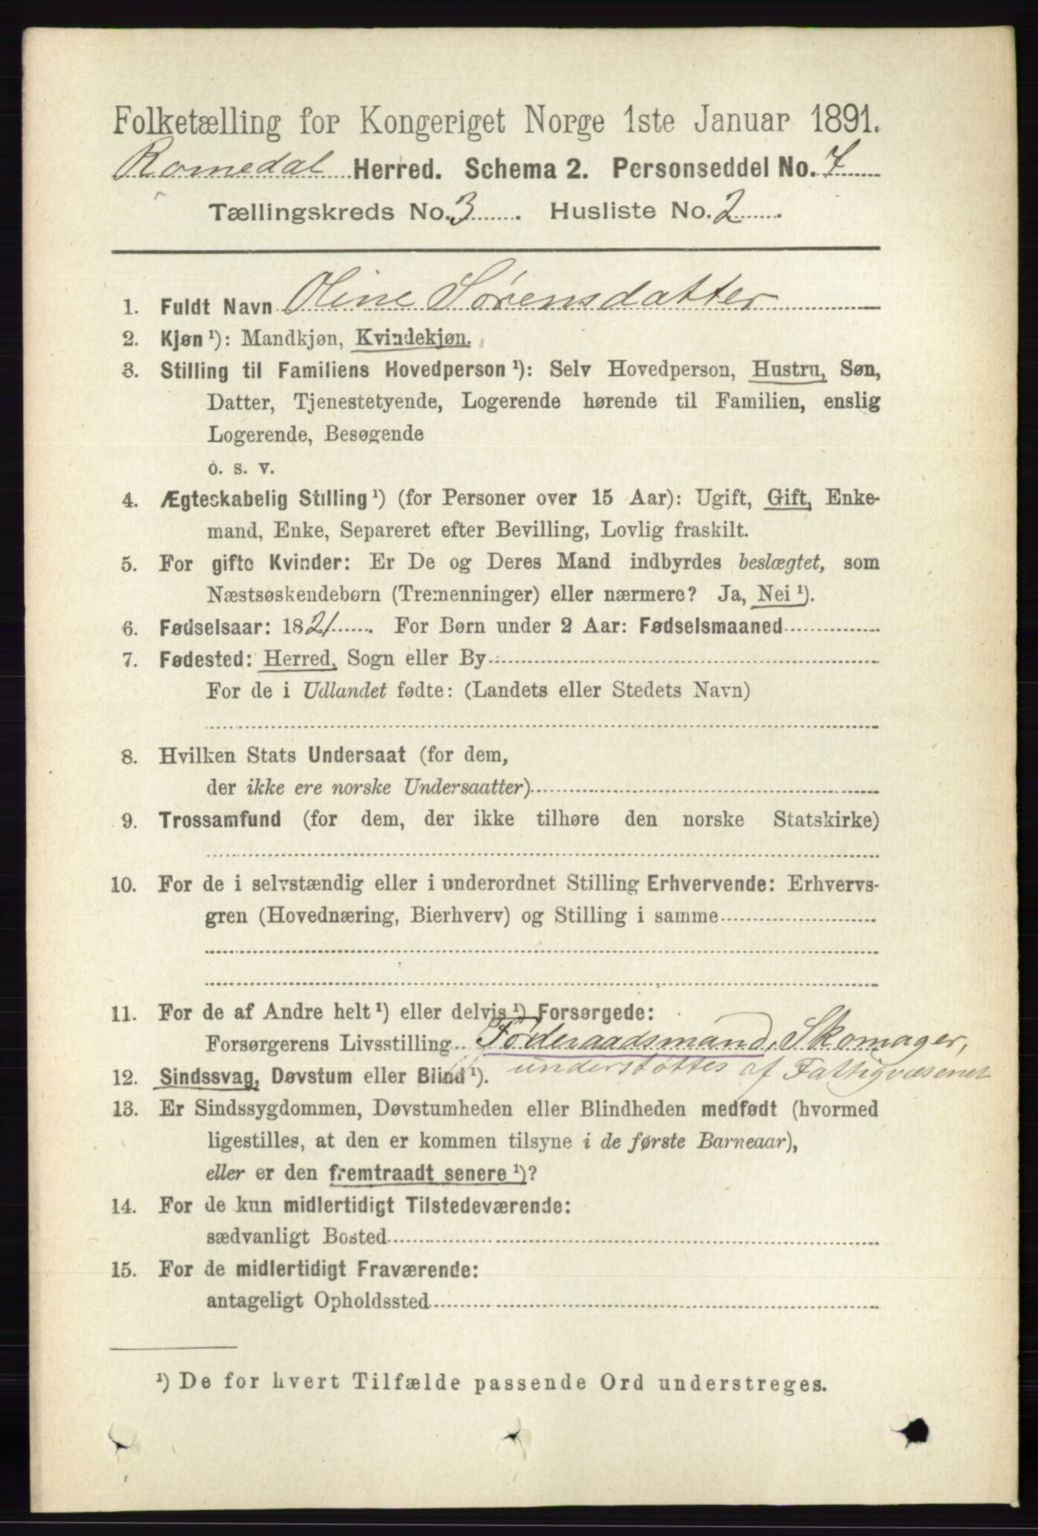 Folketælling for Kongeriget Norge 1ste Januar 1891.
Romedal Herred. Schema 2. Personseddel No. 7
Tællingskreds No. 3. Husliste No. 2.
1. Fuldt Navn Oline Sørensdatter
2. Kjøn¹): Mandkjøn, Kvindekjøn.
3. Stilling til Familiens Hovedperson¹): Selv Hovedperson, Hustru, Søn,
Datter, Tjenestetyende, Logerende hørende til Familien, enslig
Logerende, Besøgende
o. s. v.
4. Ægteskabelig Stilling¹) (for Personer over 15 Aar): Ugift, Gift, Enke-
mand, Enke, Separeret efter Bevilling, Lovlig fraskilt.
5. For gifte Kvinder: Er De og Deres Mand indbyrdes beslægtet, som
Næstsøskendebørn (Tremenninger) eller nærmere? Ja, Nei¹).
6. Fødselsaar: 1821. For Børn under 2 Aar: Fødselsmaaned
7. Fødested: Herred, Sogn eller By
For de i Udlandet fødte: (Landets eller Stedets Navn)
8. Hvilken Stats Undersaat (for dem,
der ikke ere norske Undersaatter)
9. Trossamfund (for dem, der ikke tilhøre den norske Statskirke)
10. For de i selvstændig eller i underordnet Stilling Erhvervende: Erhvervs-
gren (Hovednæring, Bierhverv) og Stilling i samme
11. For de af Andre helt¹) eller delvis¹) Forsørgede:
Forsørgerens Livsstilling Føderaadsmand, Skomager,
understøttes af Fattigvæsenet
12. Sindssvag, Døvstum eller Blind¹).
13. Er Sindssygdommen, Døvstumheden eller Blindheden medfødt (hvormed
ligestilles, at den er kommen tilsyne i de første Barneaar),
eller er den fremtraadt senere¹)?
14. For de kun midlertidigt Tilstedeværende:
sædvanligt Bosted
15. For de midlertidigt Fraværende:
antageligt Opholdssted
¹) De for hvert Tilfælde passende Ord understreges.